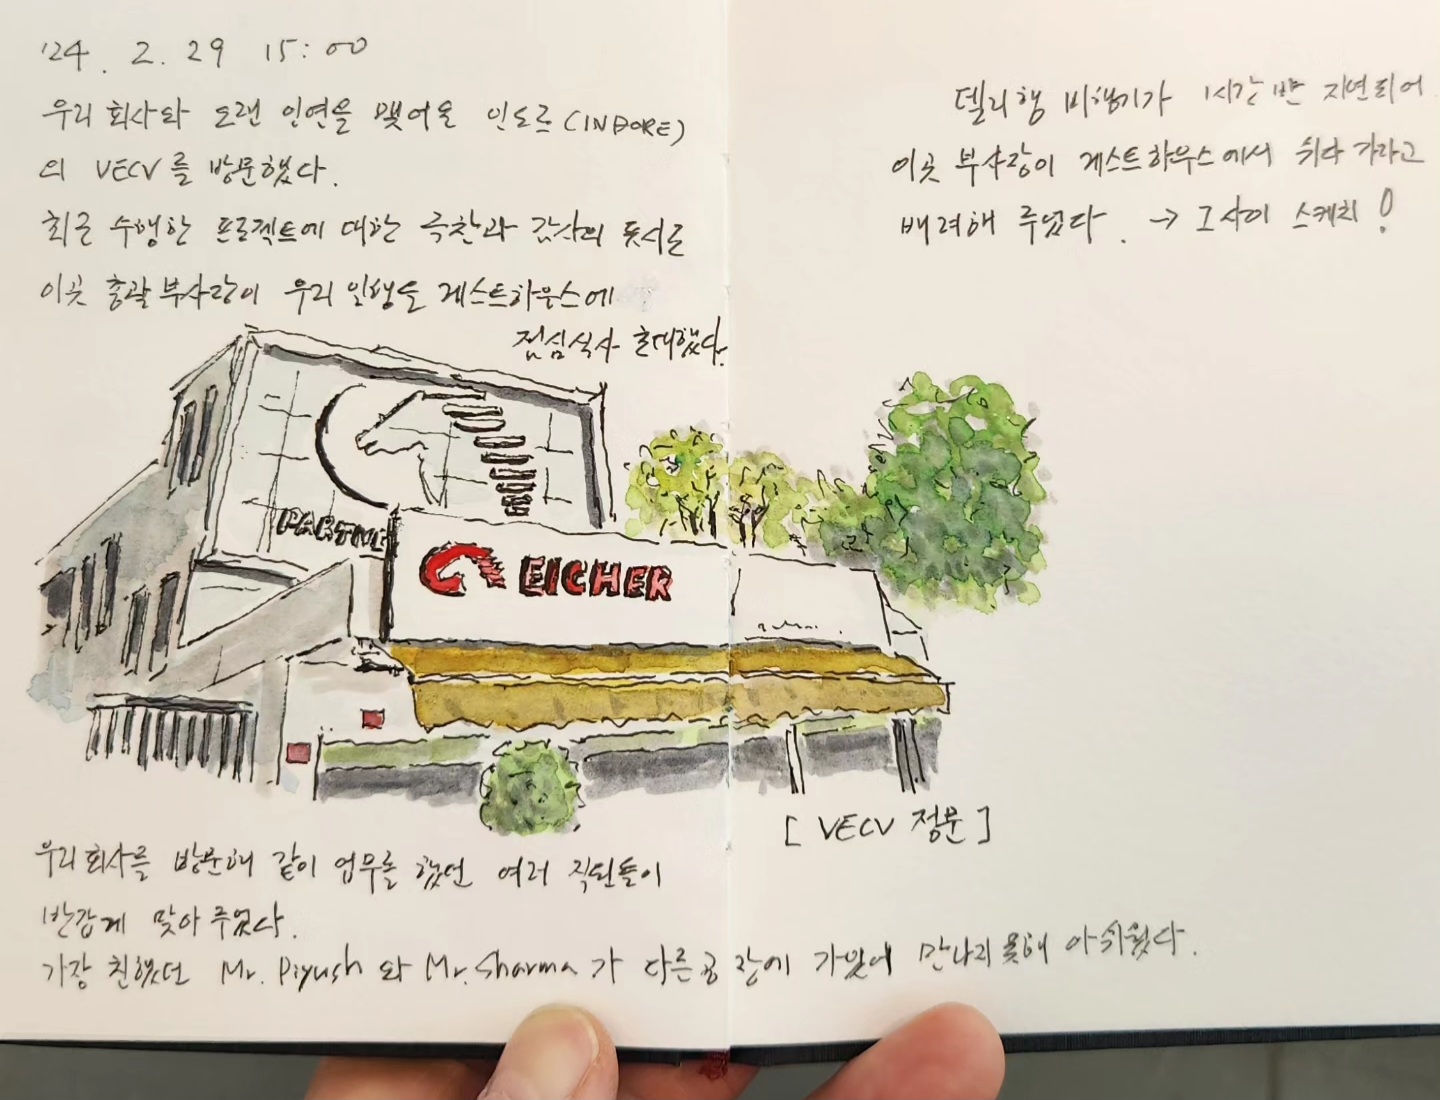 '24. 2. 29 15:00
우리 회사와 오랜 인연을 맺어온 인도르(INDORE)
의 VECV를 방문했다.
최근 수행한 프로젝트에 대한 극찬과 감사의 뜻으로
이곳 총괄 부사장이 우리 일행을 게스트하우스에
점심식사 초대했다.
델리행 비행기가 1시간 반 지연되어
이곳 부사장이 게스트하우스에서 쉬다 가라고
배려해 주었다. → 그 사이 스케치!
PARTNE
EICHER
[ VECV 정문 ]
우리 회사를 방문해 같이 업무를 했던 여러 직원들이
반갑게 맞아 주었다.
가장 친했던 Mr. Piyush 와 Mr. Sharma 가 다른 공장에 가있어 만나지 못해 아쉬웠다.